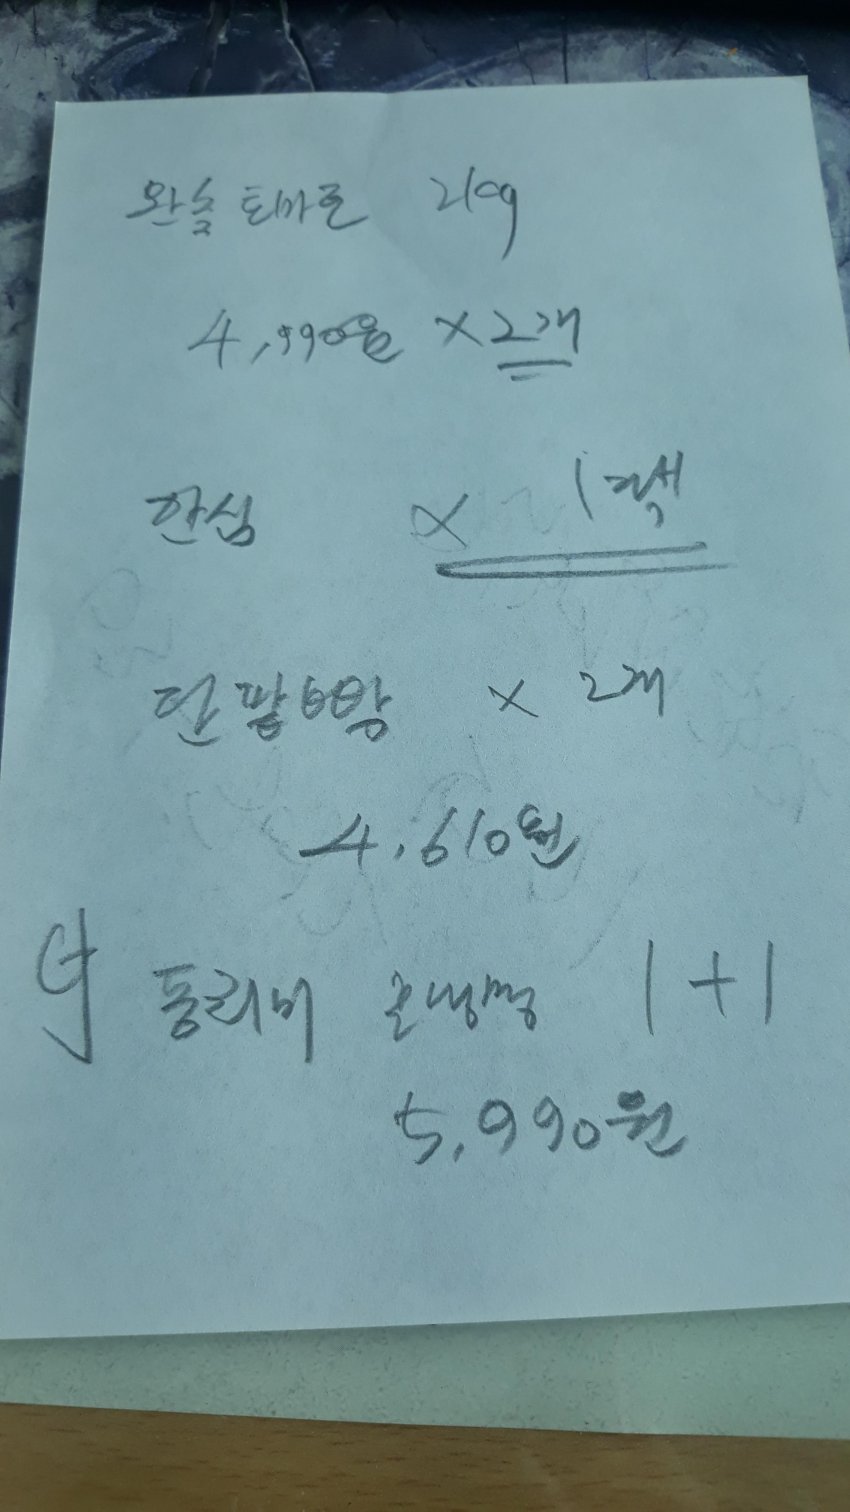 완숙 토마토 2kg
4,990원 × 2개
한심 × 1팩
단팥빵 × 2개
4,610원
냉 동치미 물냉면 1+1
5,990원